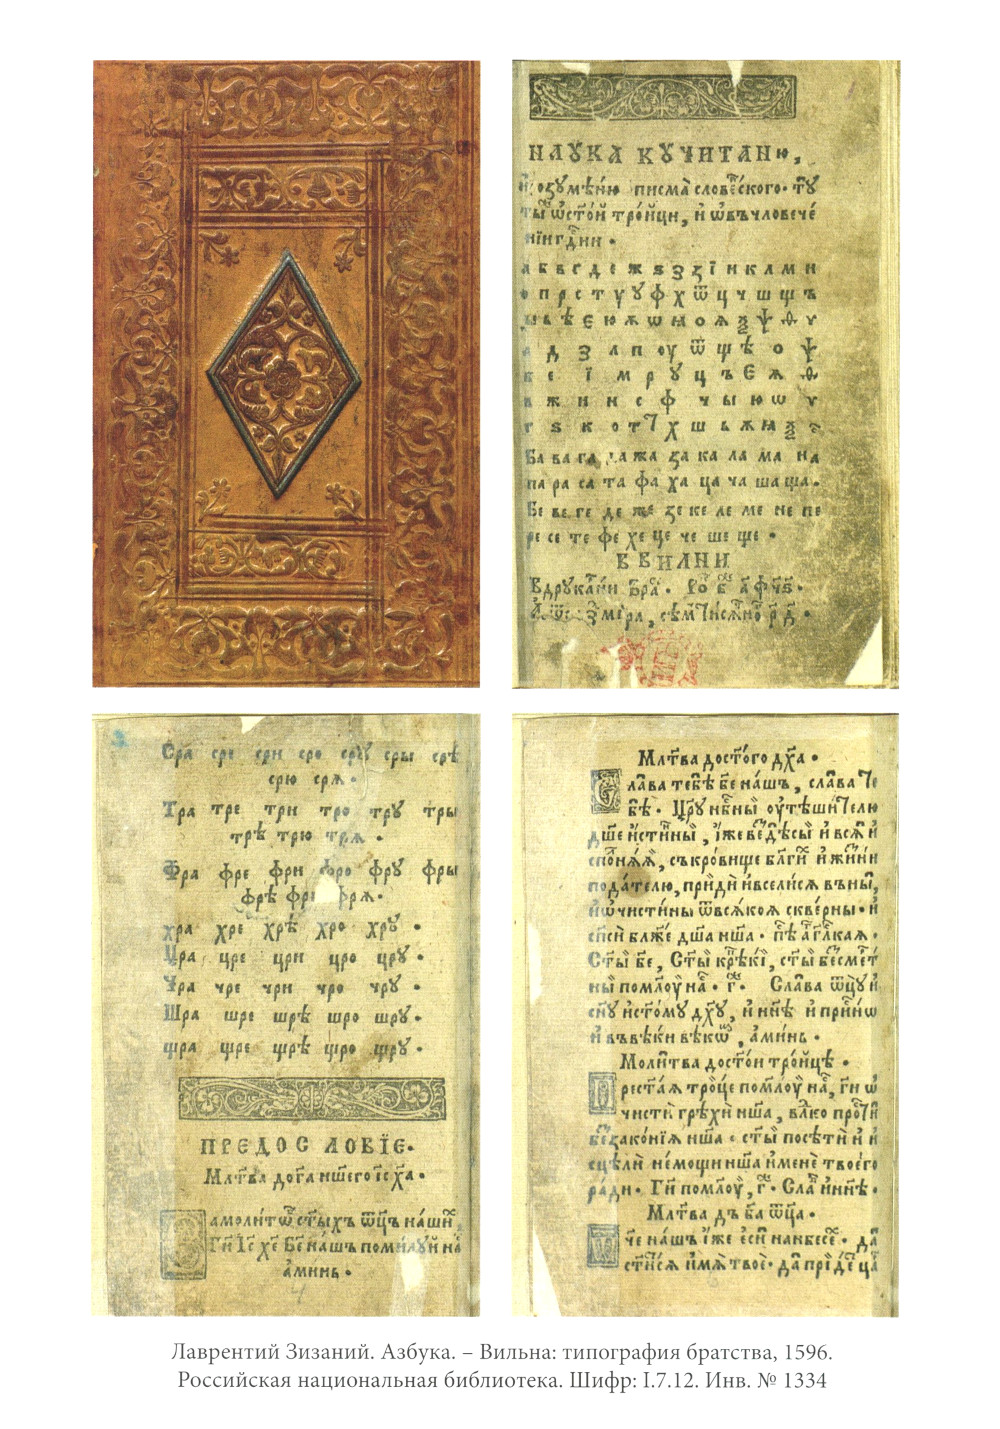 НАУКА КУЧИТАНЮ,
писма̀ словенского.
тро́йци, и҆ ѡ҆въчловече́
а б в г д е ж ѕ ꙁ ї и к л м н
о п р с т у ꙋ ф х ѿ ц ч ш щ ъ
ы ь ѣ є ю ѫ ѡ ꙗ ѻ ѧ ѯ ѱ ѳ ѵ
а д ꙁ л п оу ѿ щ ѣ о ѱ
б е ї м р ꙋ ц ъ є ѫ ѳ
в ж и н с ф ч ы ю ѡ ѵ
г ѕ к о т х ш ь
Ба ва га да жа ꙁа ка ла ма на
па ра са та фа ха ца ча ша ща.
Бе ве ге де же ꙁе ке ле ме не пе
ре се те фе хе це че ше ще.
ВВИЛНИ
Сра сре сри сро сру сры срѣ
срю срѧ.
Тра тре три тро тру тры
трѣ трю трѧ.
Фра фре фри фро фру фры
фрѣ фрю фрѧ.
хра хре хрѣ хро хру.
Цра цре цри цро цру.
Чра чре чри чро чру.
Шра шре шрѣ шро шру.
щра щре щрѣ щро щру.
ПРЕДОСЛОВІЕ.
Мл҃тва дога҃ нш҃его іс҃ х҃а.
За молитѡ҃ ст҃ыхъ ѿц҃ъ наши҃,
Ги҃ Іс҃ хе҃ Бе҃ на́шъ поми́луй на́
а҆ми́нь.
Мл҃тва дост҃о́го дх҃а.
Сла́ва тебѣ̀ бе҃ на́шъ, сла́ва те
бѣ̀. Цр҃ю нбн҃ы́й оу҆тѣ́шителю
дш҃е и҆́стинны, і҆́же ве́здѣ сы́й и҆ вся̑ и҆
сполня́ѧй, съкро́вище бл҃ги́х и҆ жи́зни
пода́телю, прїидѝ и҆ вселисѧ въны̀,
и҆ ѡ҆чи́сти ны ѿ всѧ́коѧ скве́рны. и҆
сп҃сѝ бл҃же дш҃а нш҃а.
Ст҃ы́й бе҃, Ст҃ы́й крѣ́пкі, ст҃ы́й бе́смерт
ны́й помл҃ꙋй на́. г҃. Сла́ва ѿц҃ꙋ и҆
сн҃ꙋ и҆ ст҃о́му дх҃ꙋ, и҆ нн҃ѣ и҆ при́снѡ
и҆ въ вѣ́ки вѣкѡ́, а҆ми́нь.
Моли́тва дост҃о́й тро́йцѣ.
Прест҃аѧ тро́це помл҃ꙋй на́, ги҃ ѡ҆
чи́сти грѣхѝ нш҃а, вл҃ко прости
беꙁако́нїѧ нш҃а. ст҃ы́й посѣтѝ и҆ и҆
сцѣлѝ не́мощи нш҃а и҆́мене твоего
ра́ди. Ги҃ помл҃ꙋй, г҃. Сла́ и҆ нн҃ѣ.
Мл҃тва дъ ба҃ ѿц҃а.
Ѿче на́шъ і҆́же є҆сѝ нанбесе́. да
ст҃и́сѧ и҆́мѧ твоѐ. да прїи́де ца́
Лаврентий Зизаний. Азбука. – Вильна: типография братства, 1596.
Российская национальная библиотека. Шифр: I.7.12. Инв. № 1334